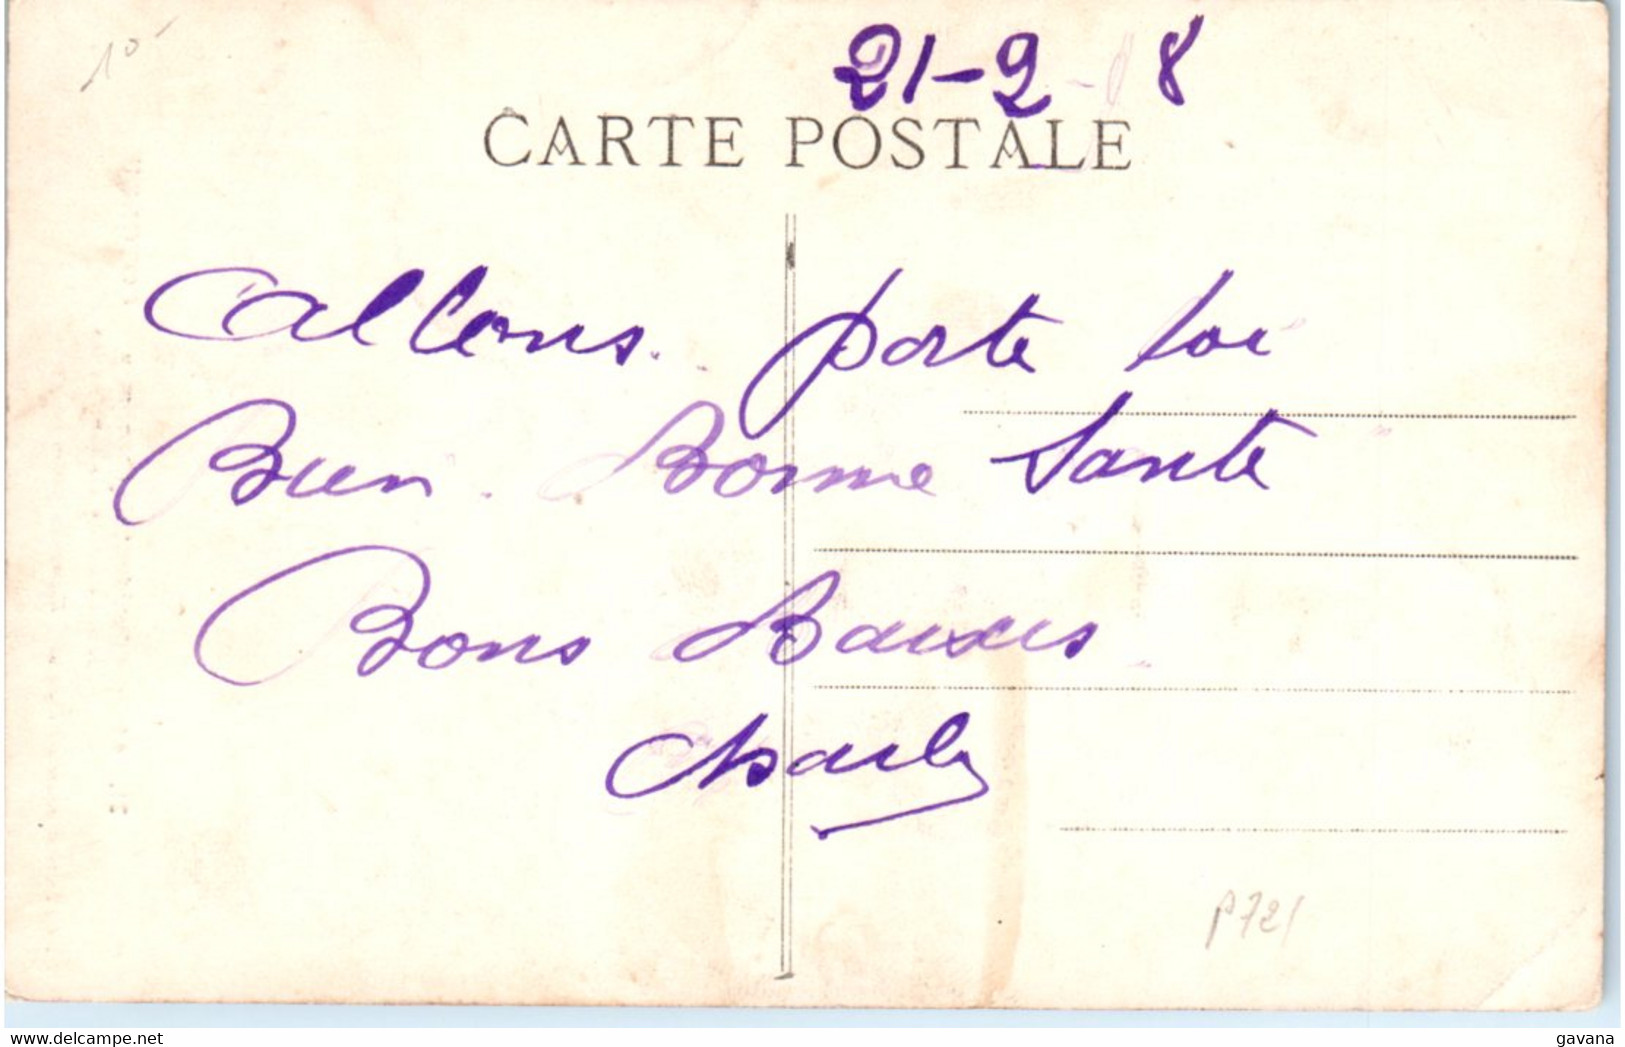 10-
21-2-18
CARTE POSTALE
Allons. porte toi
Bien. Bonne Santé
Bons Baisers
Charly
P721
gavana